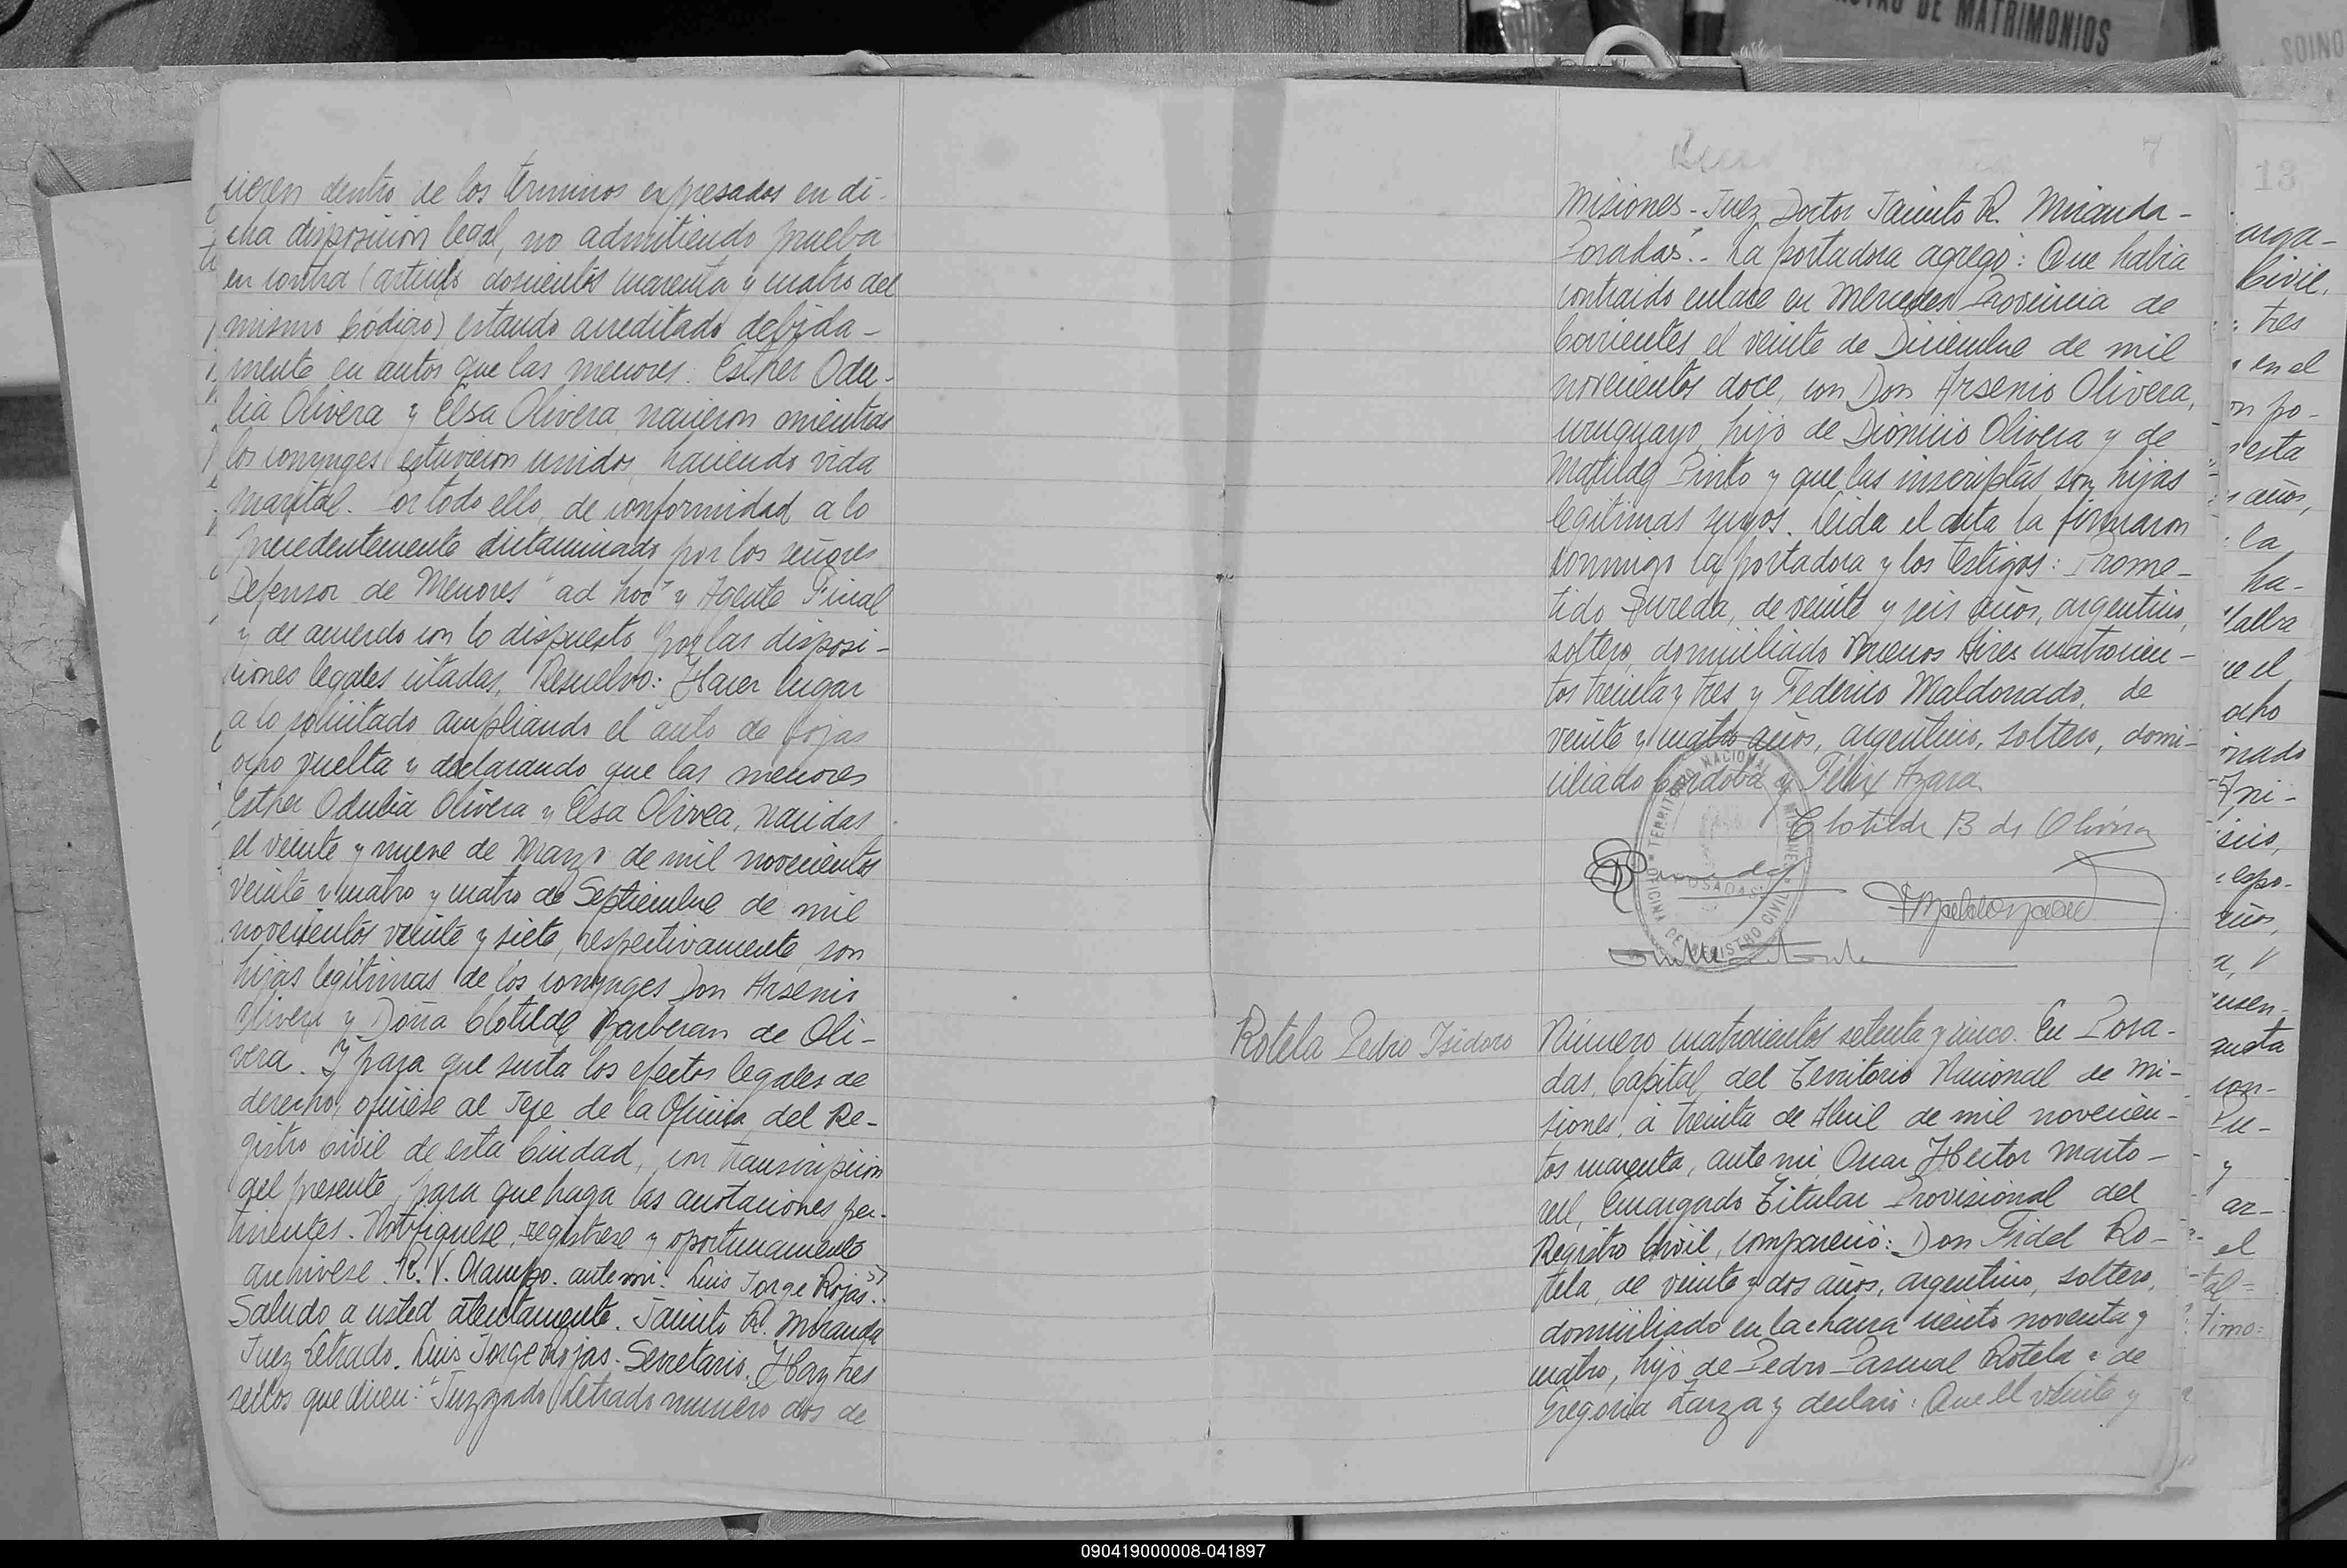 cieren dentro de los terminos expresados en di-
cha disposicion legal, no admitiendo prueba
en contra (articulo doscientos cuarenta y cuatro del
mismo Código) estando acreditado debida-
mente en autos que las menores Esther Odu-
lia Olivera y Elsa Olivera nacieron mientras
los conyuges estuvieron unidos, haciendo vida
marital. Por todo ello, de conformidad a lo
precedentemente dictaminado por los señores
Defensor de Menores "ad hoc" y Agente Fiscal
y de acuerdo con lo dispuesto por las disposi-
ciones legales citadas, Resuelvo: Hacer lugar
a lo solicitado ampliando el auto de fojas
ocho vuelta y declarando que las menores
Esther Odulia Olivera y Elsa Olivea, nacidas
el veinte y nueve de Marzo de mil novecientos
veinte y cuatro y cuatro de Septiembre de mil
novecientos veinte y siete, respectivamente, son
hijas legitimas de los conyuges Don Arsenio
Olivera y Doña Clotilde Barberan de Oli-
vera. Y para que surta los efectos legales de
derecho, oficiese al Jefe de la Oficina del Re-
gistro Civil de esta Ciudad, con transcripcion
del presente, para que haga las anotaciones per-
tinentes. Notifiquese, registrese y oportunamente
archivese. R. V. Ocampo. ante mi: Luis Jorge Rojas".
Saludo a usted atentamente. Jacinto R. Miranda
Juez Letrado. Luis Jorge Rojas. Secretario. Hay tres
sellos que dicen: "Juzgado Letrado numero dos de
7
Misiones - Juez Doctor Jacinto R. Miranda -
Posadas". - La portadora agregó: Que habia
contraido enlace en Mercedes Provincia de
Corrientes el veinte de Diciembre de mil
novecientos doce, con Don Arsenio Olivera,
uruguayo, hijo de Dionicio Olivera y de
Matilda Pinto y que las inscriptas son hijas
legitimas suyos. Leida el acta la firmaron
conmigo la portadora y los testigos: Prome-
tido Sureda, de veinte y seis años, argentino,
soltero, domiciliado Buenos Aires cuatrocien-
tos treinta y tres y Federico Maldonado, de
veinte y cuatro años, argentino, soltero, domi-
ciliado Córdoba y Félix Azara.
Clotilde B de Olivera
TERRITORIO NACIONAL DE MISIONES
POSADAS
OFICINA DE REGISTRO CIVIL
Rotela Pedro Isidoro
Número cuatrocientos setenta y cinco. En Posa-
das, Capital del Territorio Nacional de Mi-
siones, á treinta de Abril de mil novecien-
tos cuarenta, ante mi Oscar Hector Marto-
rell, Encargado Titular Provisional del
Registro Civil, compareció: Don Fidel Ro-
tela, de veinte y dos años, argentino, soltero,
domiciliado en la chacra ciento noventa y
cuatro, hijo de Pedro Pascual Rotela e de
Gregoria Zarza y declaró: Que el veinte y
DE MATRIMONIOS
13
arga-
Civil,
tres
en el
po-
esta
años,
la
ha-
el
ocho
y
ar-
el
090419000008-041897